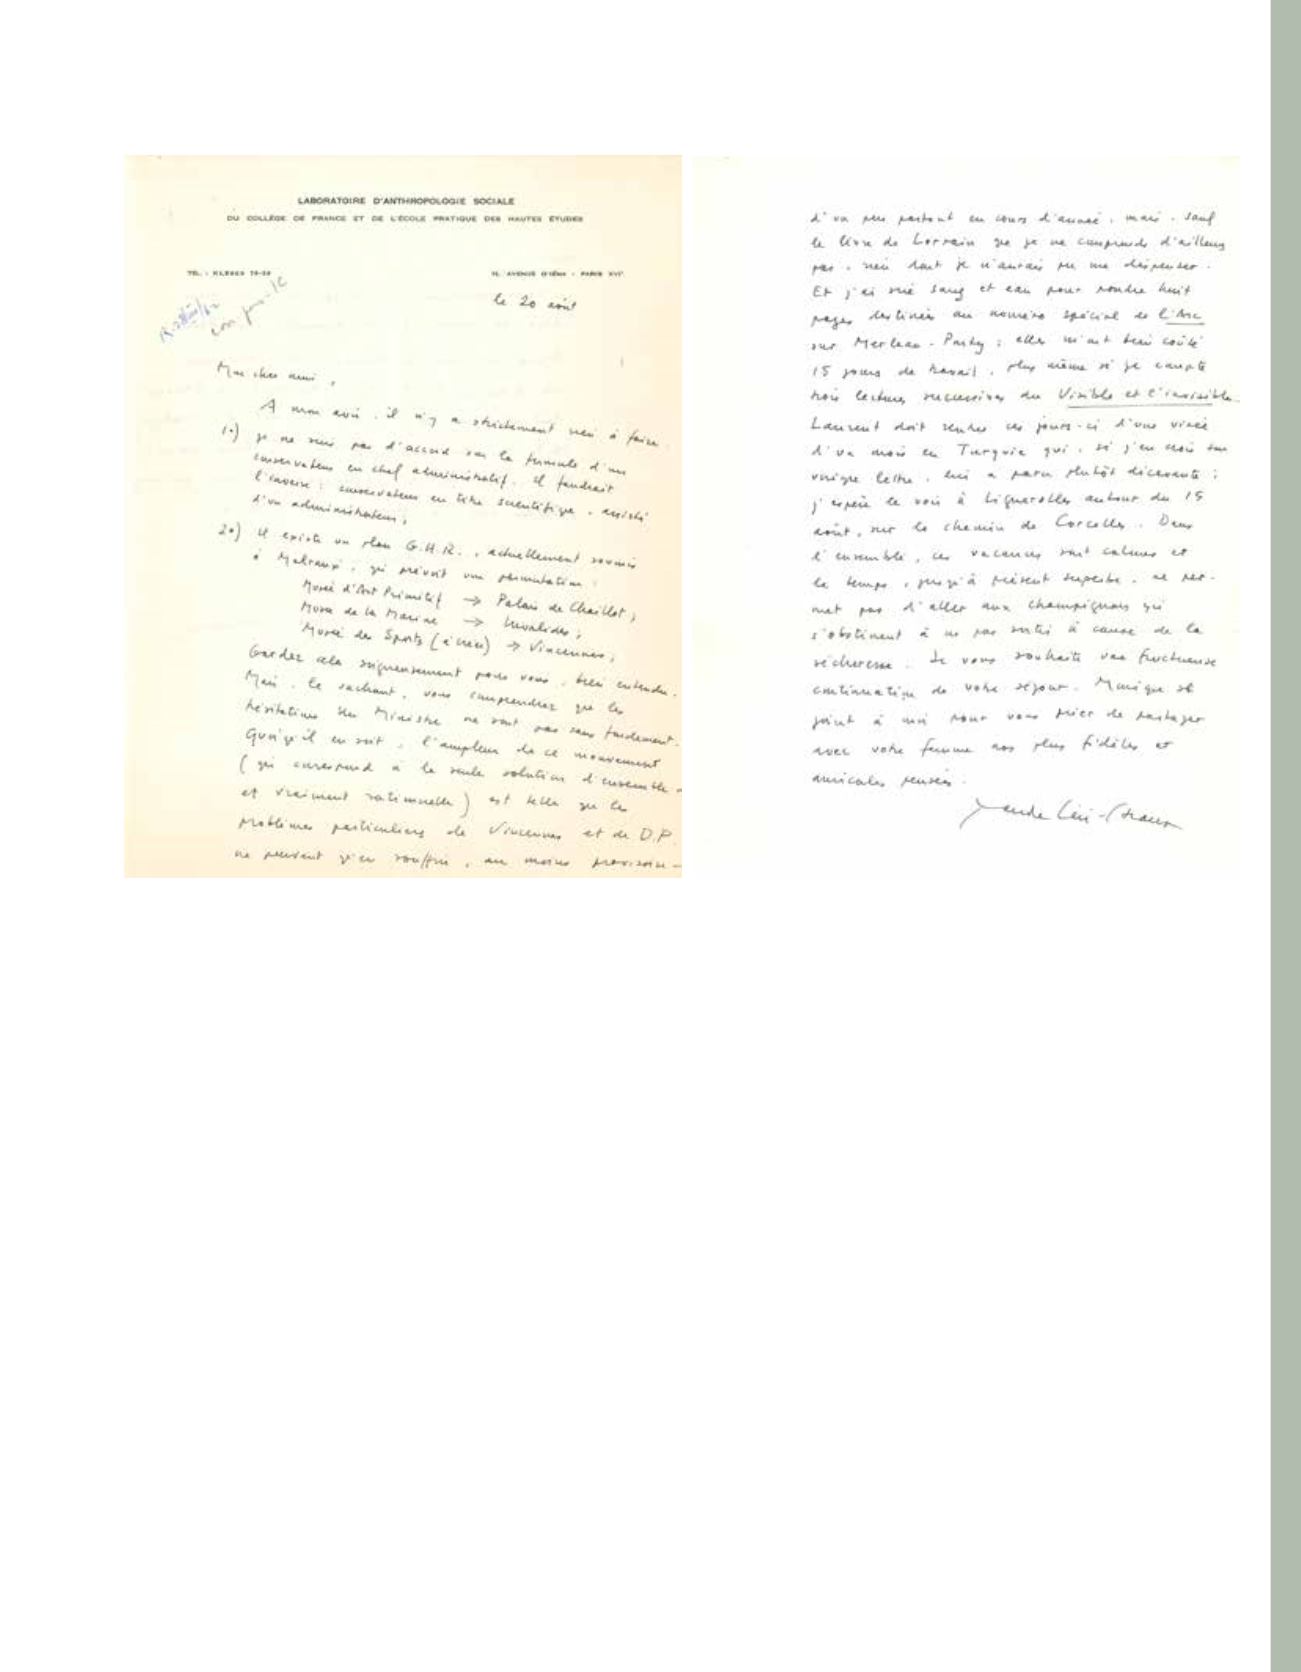 LABORATOIRE D'ANTHROPOLOGIE SOCIALE
DU COLLÈGE DE FRANCE ET DE L'ÉCOLE PRATIQUE DES HAUTES ÉTUDES
TÉL. : KLEBER
AVENUE D'IÉNA - PARIS XVIe
le 20 août
Mon cher ami,
A mon avis, il n'y a strictement rien à faire.
1°) je ne suis pas d'accord sur la formule d'un
conservateur en chef administratif. Il faudrait
l'inverse : conservateur en titre scientifique, assisté
d'un administrateur ;
2°) il existe un plan G.H.R., actuellement soumis
à Malraux, qui prévoit une permutation :
Musée d'Art Primitif → Palais de Chaillot ;
Musée de la Marine → Invalides ;
Musée des Sports (à créer) → Vincennes ;
Gardez cela soigneusement pour vous, bien entendu.
Mais, le sachant, vous comprendrez que les
hésitations du Ministre ne sont pas sans fondement.
Quoiqu'il en soit, l'ampleur de ce mouvement
(qui correspond à la seule solution d'ensemble
et vraiment rationnelle) est telle que les
problèmes particuliers de Vincennes et de D.P.
ne peuvent qu'en souffrir, au moins provisoire-
d'un peu partout en cours d'année, mais, sauf
le livre de Lorrain que je ne comprends d'ailleurs
pas, rien dont je n'aurais pu me dispenser.
Et j'ai sué sang et eau pour pondre huit
pages destinées au numéro spécial de l'Arc
sur Merleau-Ponty ; elles m'ont bien coûté
15 jours de travail, plus même si je compte
trois lectures successives du Visible et l'invisible.
Laurent doit rentrer ces jours-ci d'une virée
d'un mois en Turquie qui, si j'en crois son
unique lettre, lui a paru plutôt décevante ;
j'espère le voir à Lignerolles autour du 15
août, sur le chemin de Corcelles. Dans
l'ensemble, ces vacances sont calmes et
le temps, jusqu'à présent superbe, ne per-
met pas d'aller aux champignons qui
s'obstinent à ne pas sortir à cause de la
sécheresse. Je vous souhaite une fructueuse
continuation de votre séjour. Monique se
joint à moi pour vous prier de partager
avec votre femme nos plus fidèles et
amicales pensées.
Claude Lévi-Strauss